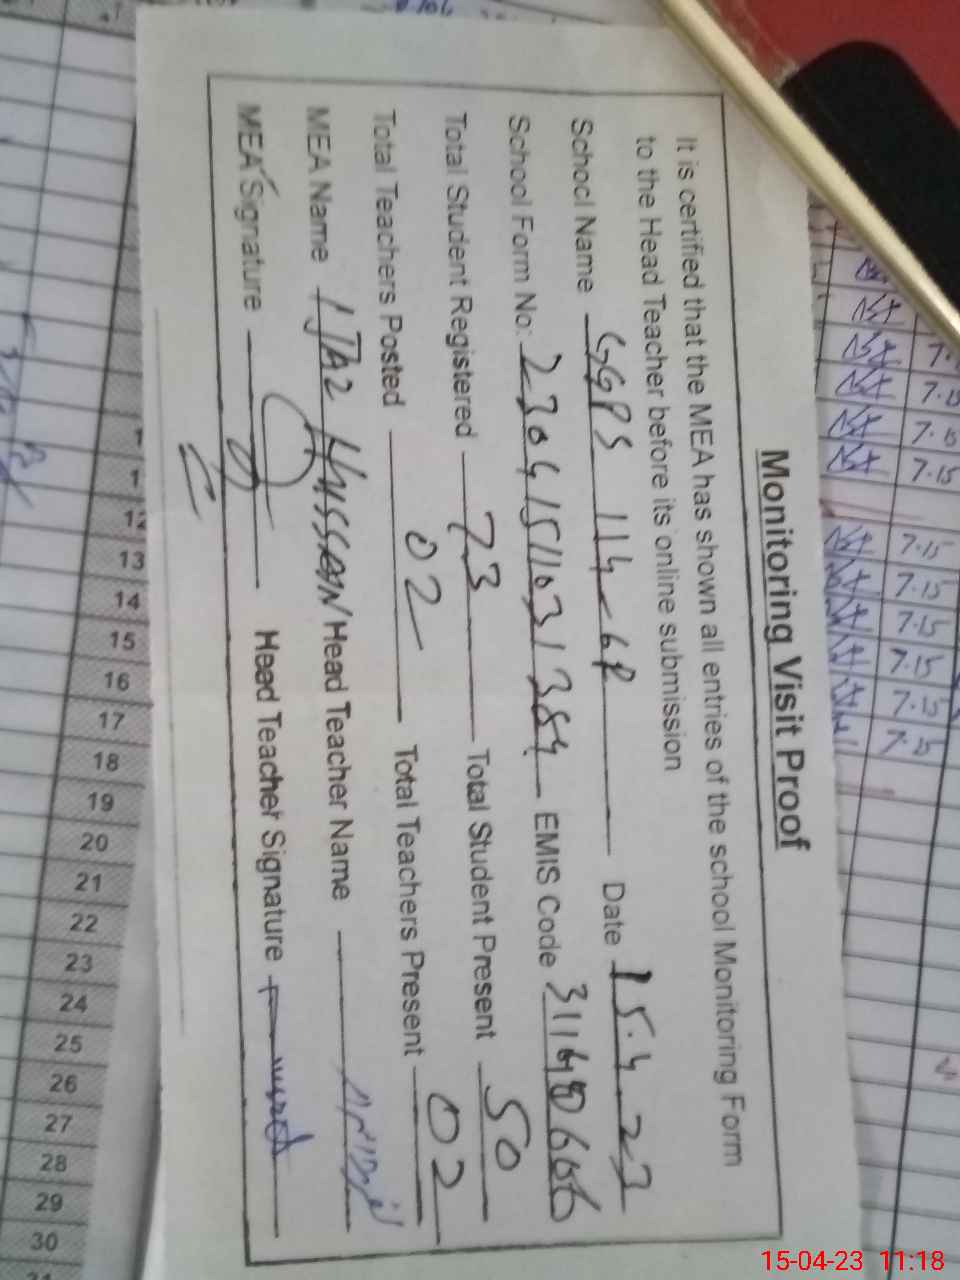 Monitoring Visit Proof
It is certified that the MEA has shown all entries of the school Monitoring Form
to the Head Teacher before its online submission
School Name GGPS 114-6R Date 15.4.23
School Form No: 23041511031384 EMIS Code
Total Student Registered 73 Total Student Present 50
Total Teachers Posted 02 Total Teachers Present 02
MEA Name IJAZ HUSSAIN Head Teacher Name
MEA Signature Head Teacher Signature
7.15
7.15
7.15
7.15
7.15
7.15
7.15
7.15
12
13
14
15
16
17
18
19
20
21
22
23
24
25
26
27
28
29
30
15-04-23 11:18